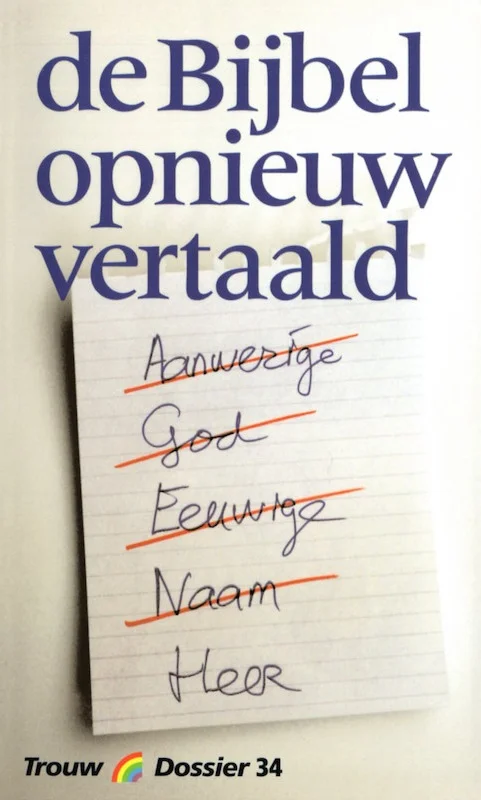 de Bijbel
opnieuw
vertaald
Aanwezige
God
Eeuwige
Naam
Heer
Trouw Dossier 34